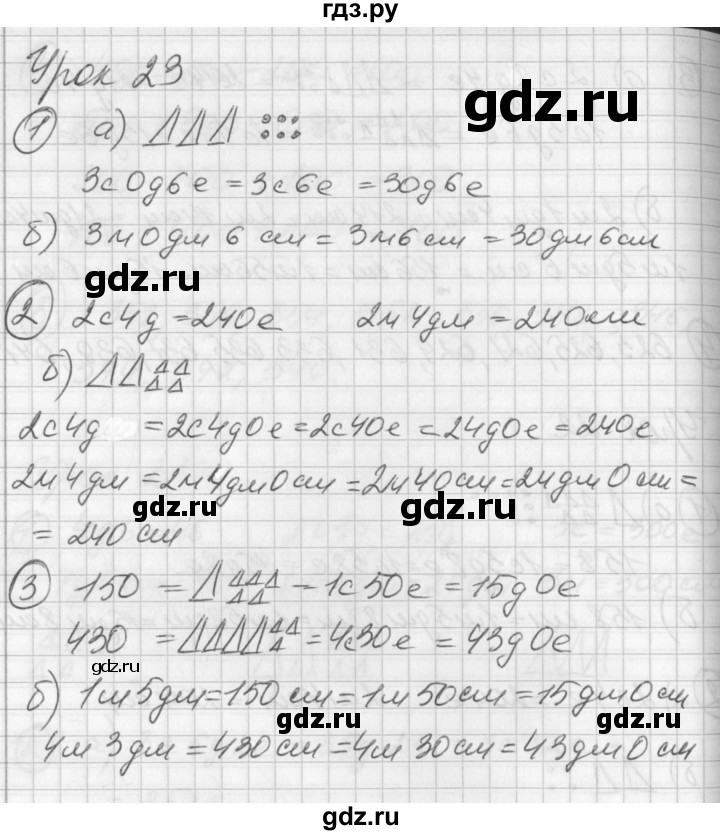 гдз.ру
Урок 23
1 а)
gdz.ru
3с0д6е = 3с6е = 30д6е
б) 3м0дм 6 см = 3м6см = 30дм6см
gdz.ru
2 2с4д = 240е 2м4дм = 240см
б)
2с4д = 2с4д0е = 2с40е = 24д0е = 240е
2м4дм = 2м4дм0см = 2м40см = 24дм0см =
gdz.ru gdz.ru
= 240см
3 150 = = 1с50е = 15д0е
430 = = 4с30е = 43д0е
gdz.ru
б) 1м5дм = 150см = 1м50см = 15дм0см
gdz.ru gdz.ru
4м 3дм = 430см = 4м 30см = 43дм0см
gdz.ru